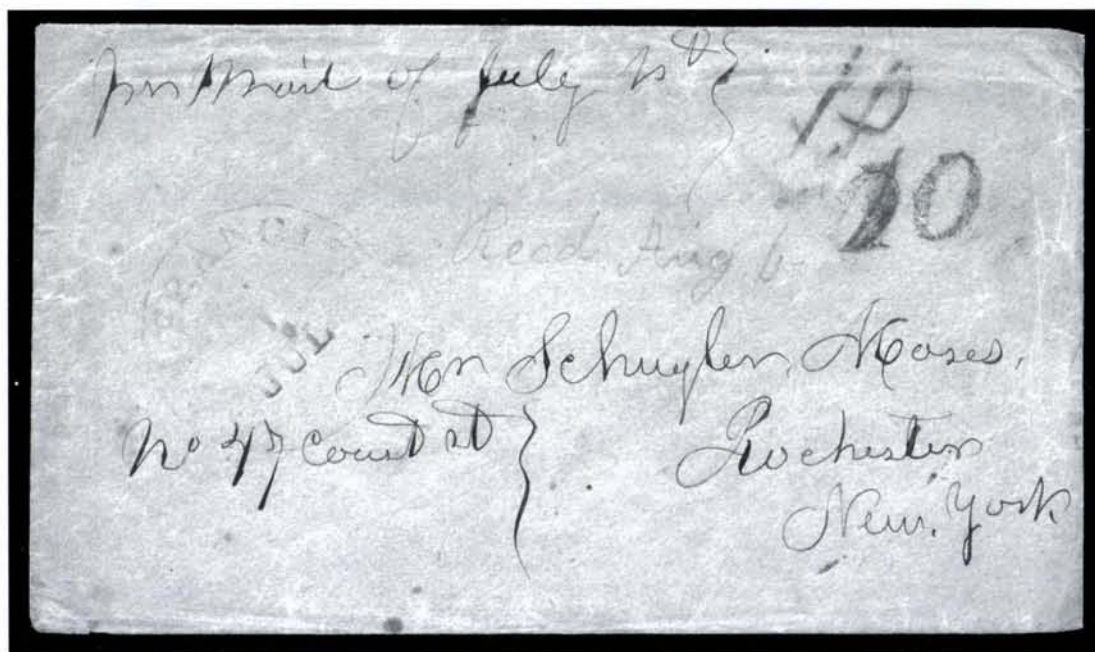 Per Mail of July
10
10
Recd Aug 6
JUL
Mr Schuyler Moses,
No 47 Court st
Rochester
New. York